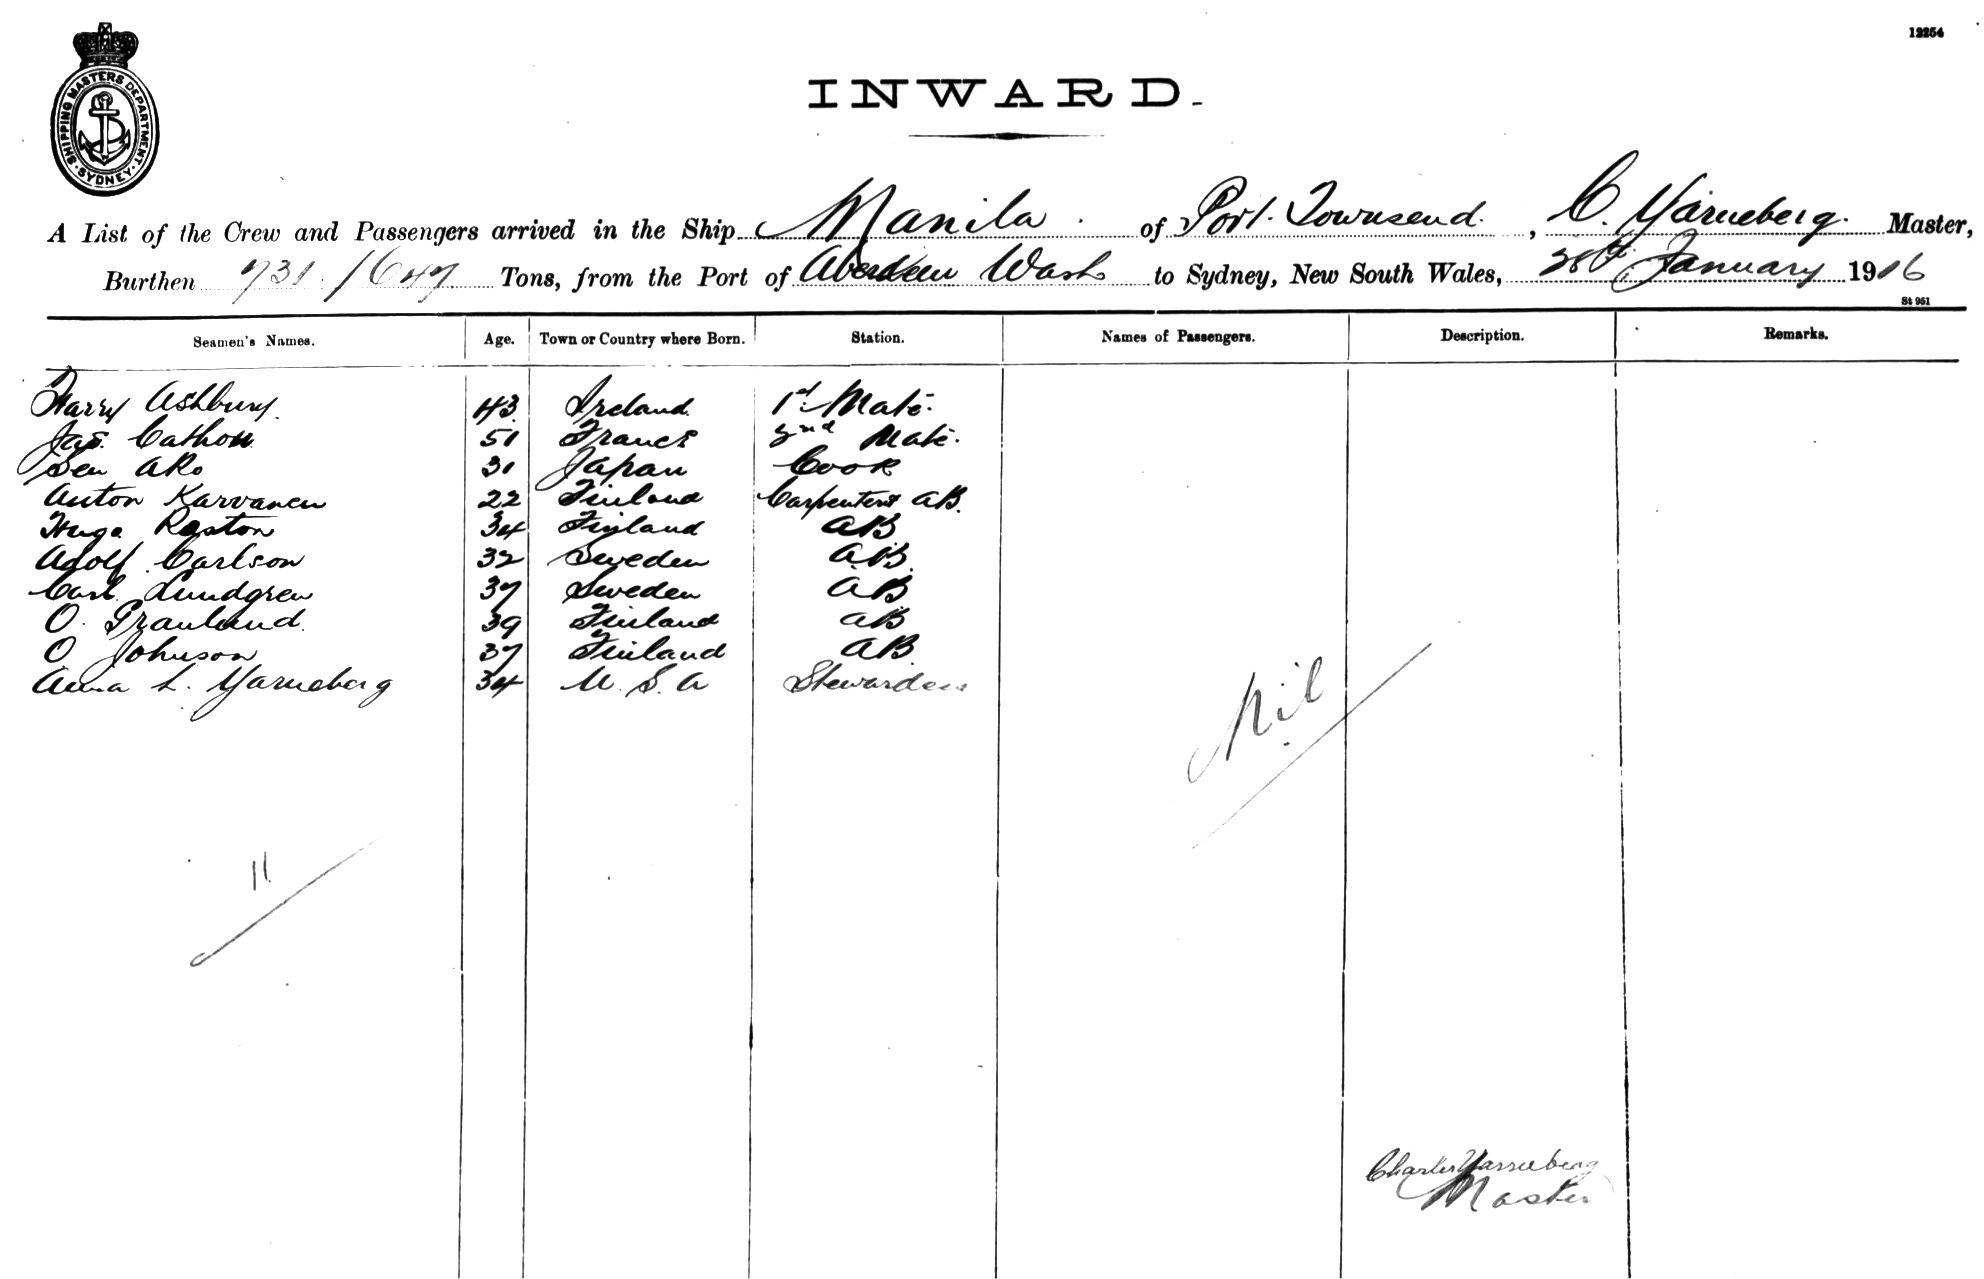 12254
SHIPPING MASTERS DEPARTMENT
SYDNEY
INWARD.
A List of the Crew and Passengers arrived in the Ship Manila of Port Townsend, C. Yarneberg. Master,
Burthen 731 /647 Tons, from the Port of Aberdeen Wash to Sydney, New South Wales, January 1916
St 961
Seamen's Names. Age. Town or Country where Born. Station. Names of Passengers. Description. Remarks.
Harry Ashbury. 43 Ireland 1st Mate.
Jas. Cathou 51 France 2nd Mate.
Sen Ako 31 Japan Cook
Anton Karvanen 22 Finland Carpenter AB.
Hugo Raston 34 Finland AB
Adolf Carlson 32 Sweden AB.
Carl Lundgren 37 Sweden AB
O. Granlund. 39 Finland AB
O Johnson 37 Finland AB
Anna L. Yarneberg 34 U. S. A Stewardess
Nil
11
Charles Yarneberg
Master